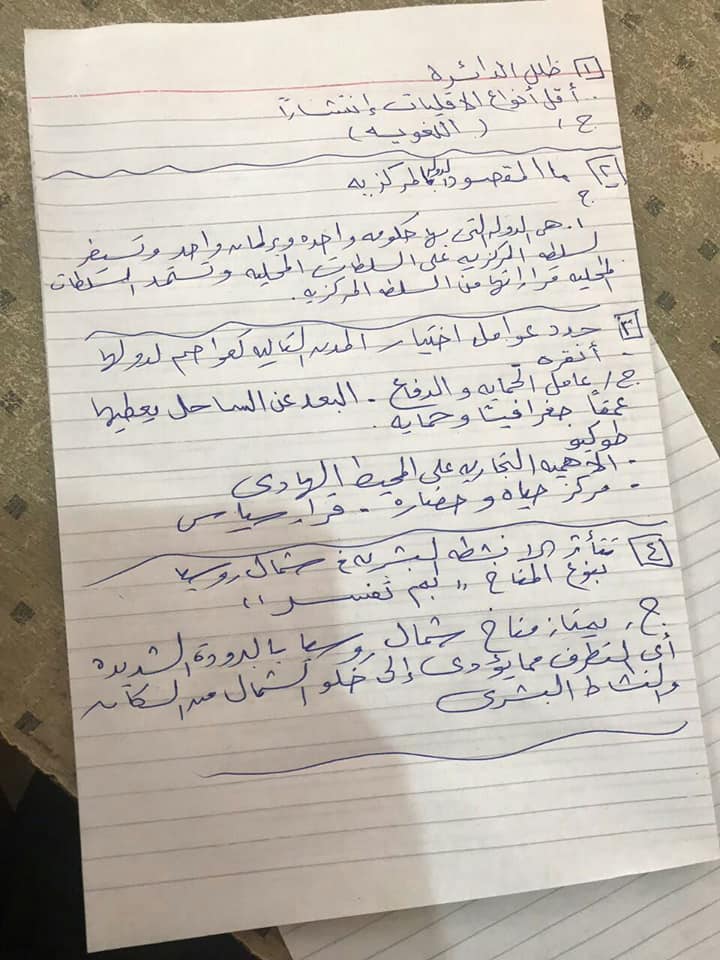 ١ ظلل الدائرة
.. أقل أنواع الاقليات إنتشاراً
ج / ( اللغويه )
٢ ما المقصود الدوله المركزيه
ج
١. هى الدوله التى بها حكومه واحده وبرلمان واحد وتسيطر
السلطه المركزيه على السلطات المحليه وتستمد السلطات
المحليه قراراتها من السلطه المركزيه.
٣ حدد عوامل اختيار المدن التاليه كعواصم لدولها
- أنقره
ج / عامل الحمايه والدفاع - البعد عن الساحل يعطيها
عمقاً جغرافيتاً وحمايه.
طوكيو
- الاهميه التجاريه على المحيط الهادى
- مركز حياه وحضاره - قرار سياسى
٤ تتأثر الانشطه البشريه فى شمال روسيا
بنوع المناخ " بم تفسر "
ج / يمتاز مناخ شمال روسيا بالبرودة الشديدة
أى المتطرف مما يؤدى إلى خلو الشمال من السكان
والنشاط البشرى